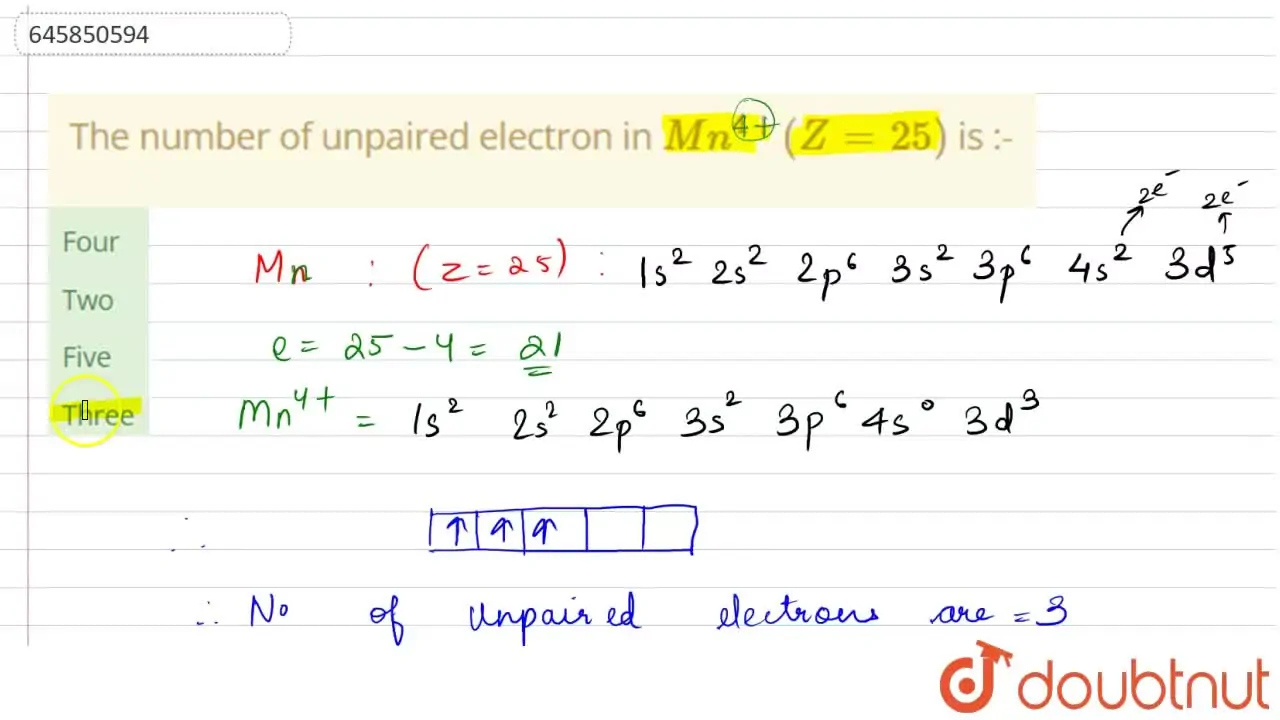 645850594
The number of unpaired electron in Mn⁴⁺ (Z = 25) is :-
2e⁻ 2e⁻
Four
Mn : (Z=25) : 1s² 2s² 2p⁶ 3s² 3p⁶ 4s² 3d⁵
Two
e = 25 - 4 = 21
Five
Three
Mn⁴⁺ = 1s² 2s² 2p⁶ 3s² 3p⁶ 4s⁰ 3d³
∴ No of unpaired electrons are = 3
doubtnut